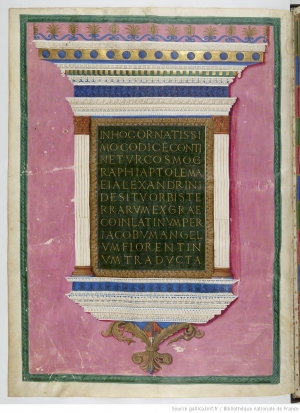 INHOCORNATISSI
MOCODICECONTI
NETVRCOSMOG
RAPHIAPTOLEMA
EIALEXANDRINI
DESITVORBISTE
RRARVMEXGRAE
COINLATINVMPER
IACOBVMANGEL
VMFLORENTIN
VMTRADVCTA
Source gallica.bnf.fr / Bibliothèque nationale de France